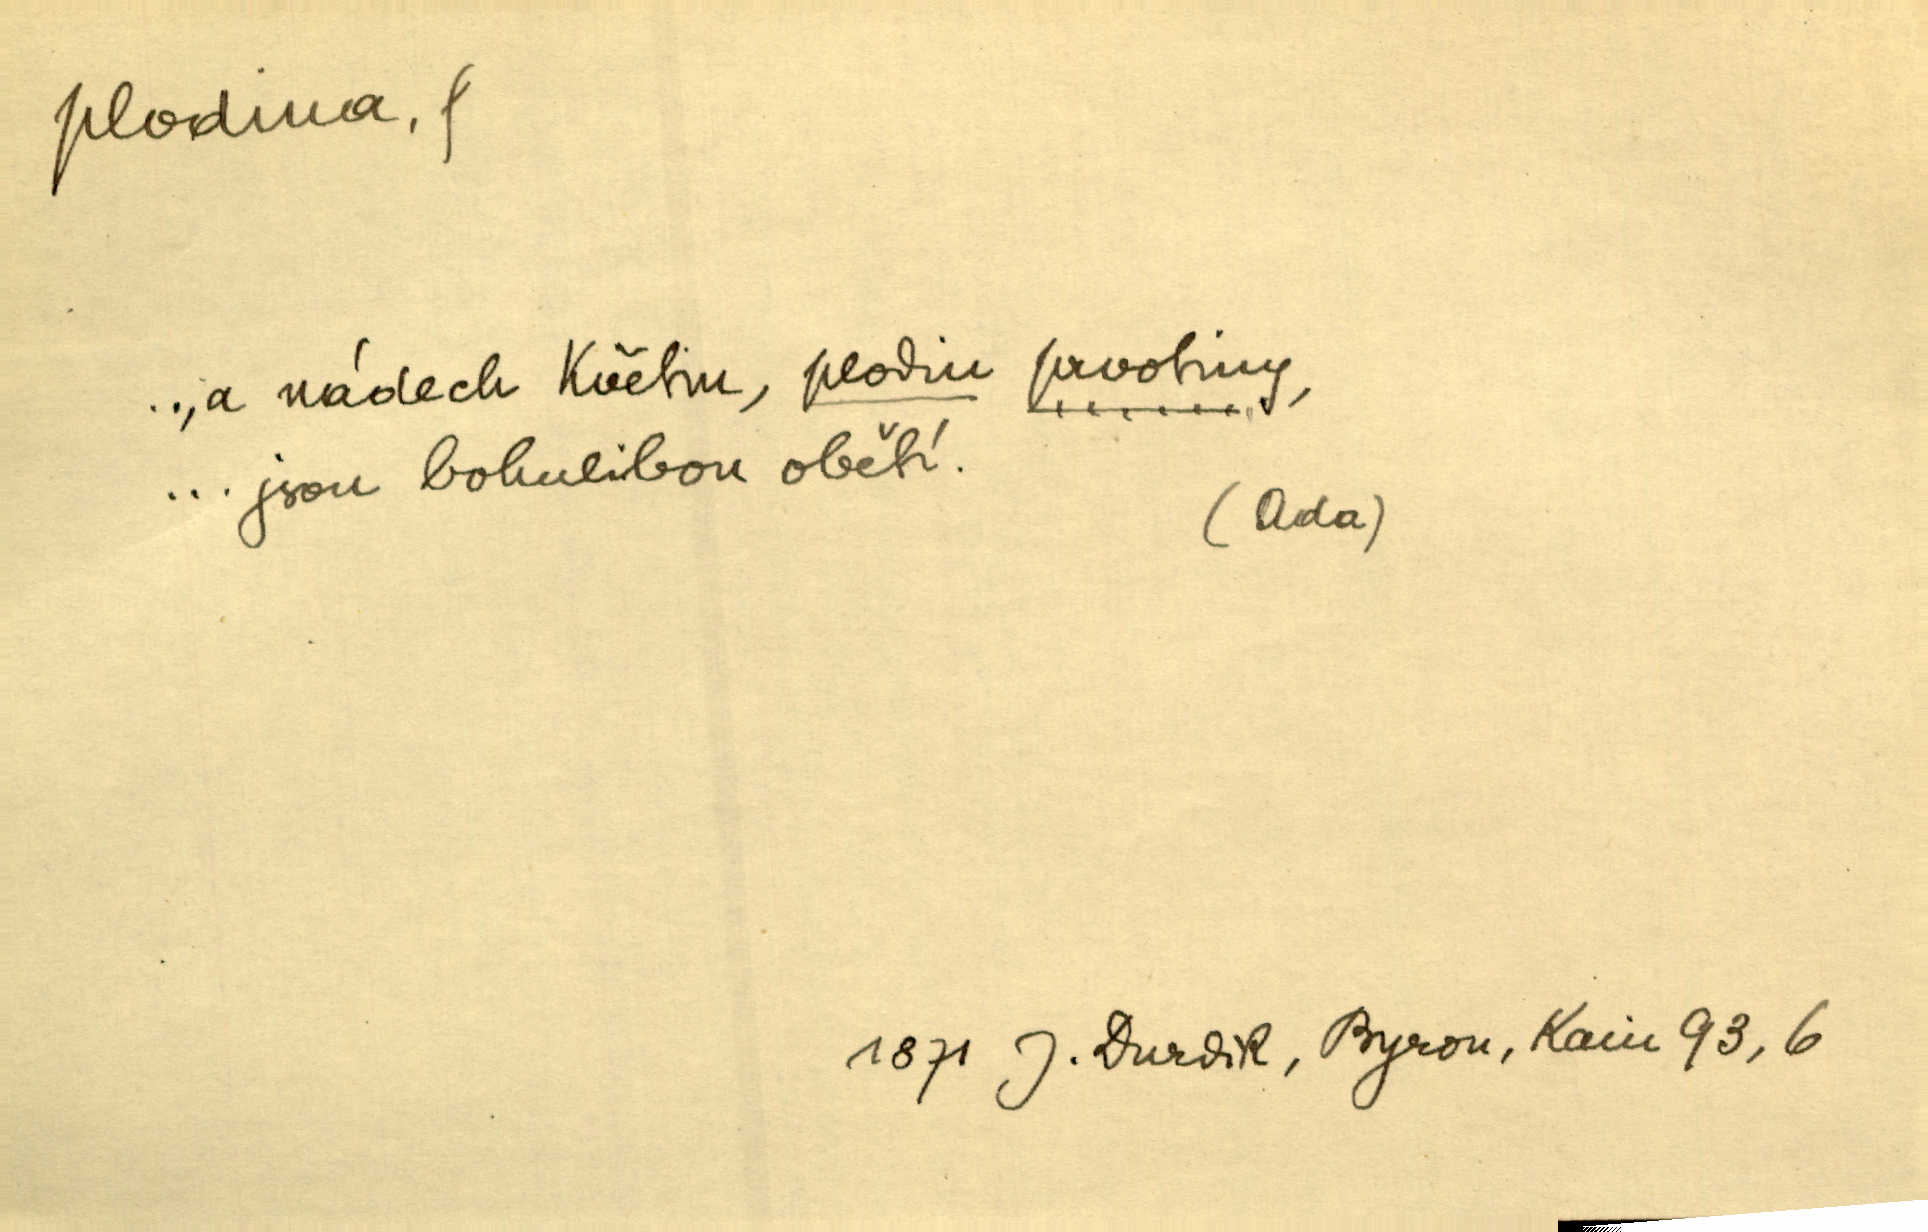 plodina, f
..., a nádech květin, plodin prvotiny,
... jsou bohulibou obětí.
(Ada)
1871 J. Durdik, Byron, Kain 93, 6